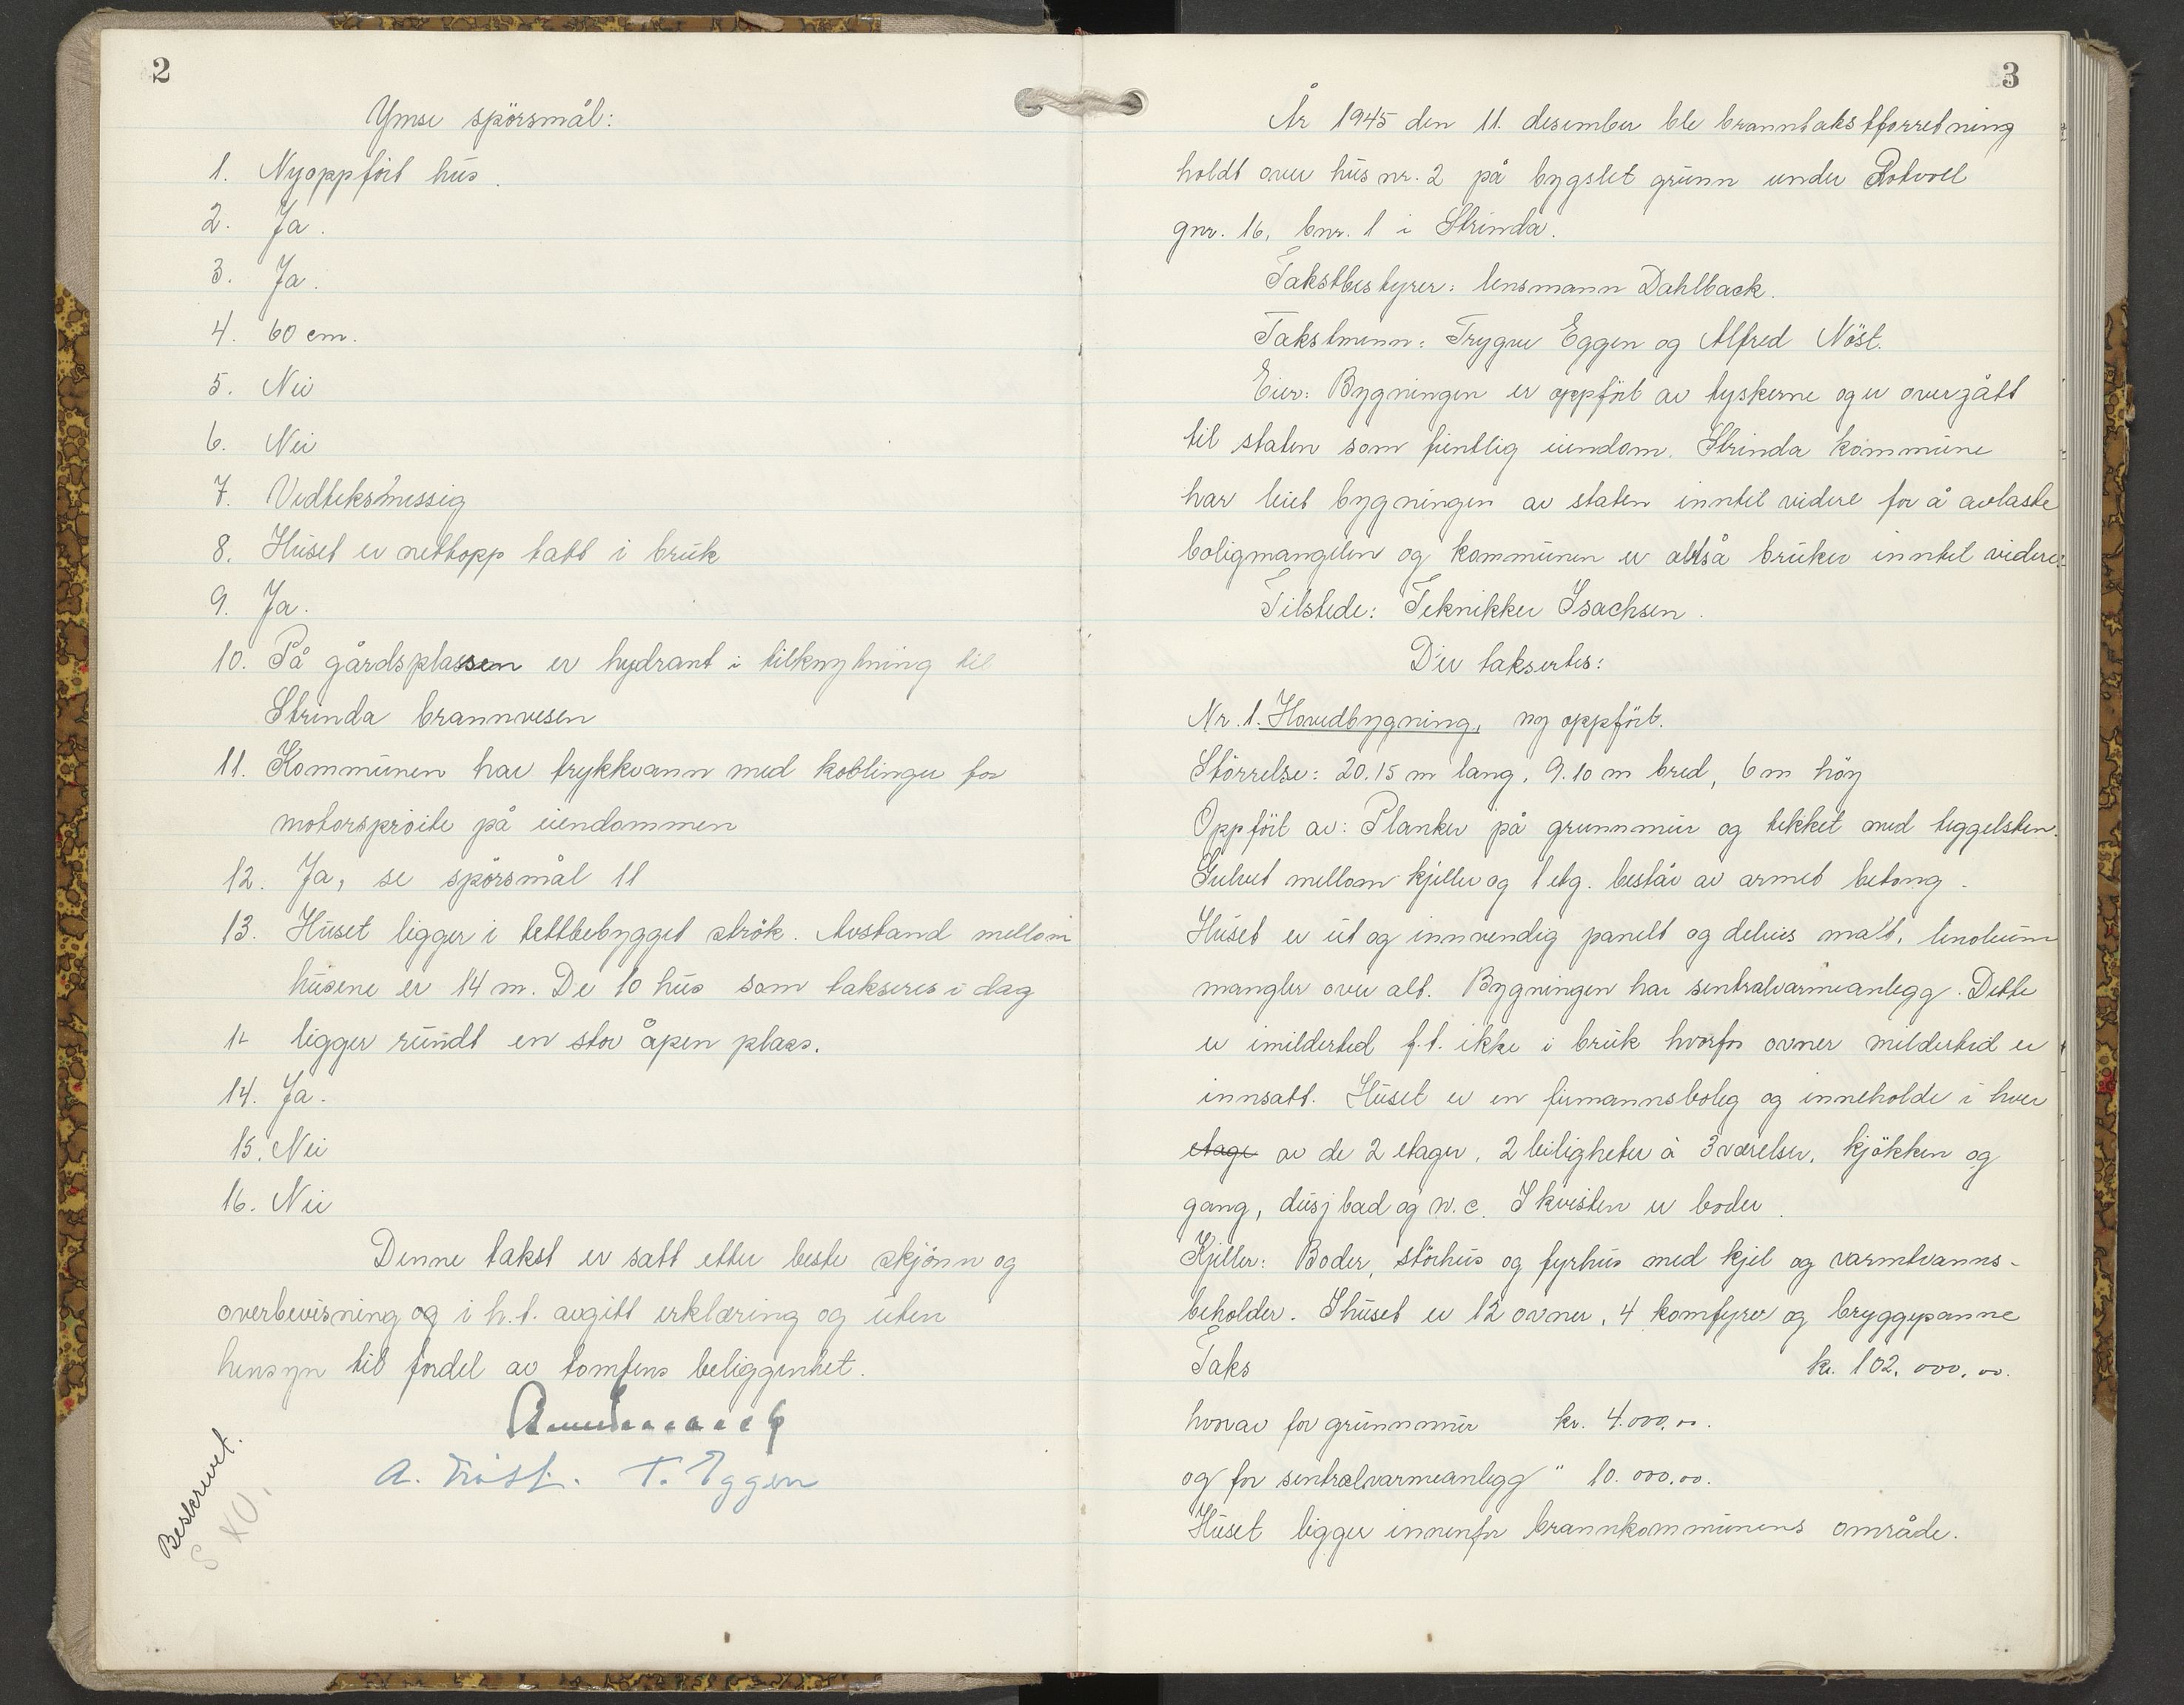 2
Ymse spörsmål:
1. Nyoppfört hus.
2. Ja.
3. Ja.
4. 60 cm.
5. Nei
6. Nei
7. Vedteksmessig
8. Huset er nettopp tatt i bruk
9. Ja.
10. På gårdsplassen er hydrant i tilknytning til
Strinda brannvesen
11. Kommunen har trykkvann med koblinger for
motorspröite på eiendommen
12. Ja, se spörsmål 11
13. Huset ligger i tettbebygget strök. Avstand mellom
husene er 14 m. De 10 hus som takseres i dag
ligger rundt en stor åpen plass.
14. Ja.
15. Nei
16. Nei
Denne takst er satt etter beste skjönn og
overbevisning og i h.t. avgitt erklæring og uten
hensyn til fordel av tomtens beliggenhet.
A. Nöst. T. Eggen
Beskrevet.
3
År 1945 den 11. desember ble branntakstforretning
holdt over hus nr. 2 på bygslet grunn under Rotvoll
gnr. 16, bnr. 1 i Strinda.
Takstbestyrer: lensmann Dahlback.
Takstmenn: Trygve Eggen og Alfred Nöst.
Eier: Bygningen er oppfört av tyskerne og er overgått
til staten som fientlig eiendom. Strinda kommune
har leiet bygningen av staten inntil videre for å avlaste
boligmangelen og kommunen er altså bruker inntil videre.
Tilstede: Teknikker Isachsen.
Der taksertes:
Nr. 1. Hovedbygning, ny oppfört.
Störrelse: 20.15 m lang, 9.10 m bred, 6 m höy
Oppfört av: Planker på grunnmur og tekket med teggelsten.
Gulvet mellom kjeller og 1 etg. består av armet betong.
Huset er ut og innvendig panelt og delvis malt, linoleum
mangler over alt. Bygningen har sentralvarmeanlegg. Dette
er imildertid f.t. ikke i bruk hvorfor ovner mildertid er
innsatt. Huset er en firmannsbolig og inneholde i hver
etage av de 2 etager, 2 leiligheter à 3 værelser, kjökken og
gang, dusjbad og w.c. I kvisten er boder.
Kjeller: Boder, störhus og fyrhus med kjel og varmtvanns-
beholder. I huset er 12 ovner, 4 komfyrer og bryggepanne
Taks kr. 102.000,00.
hvorav for grunnmur kr. 4.000,00.
og for sentralvarmeanlegg " 10.000,00.
Huset ligger innenfor brannkommunens område.